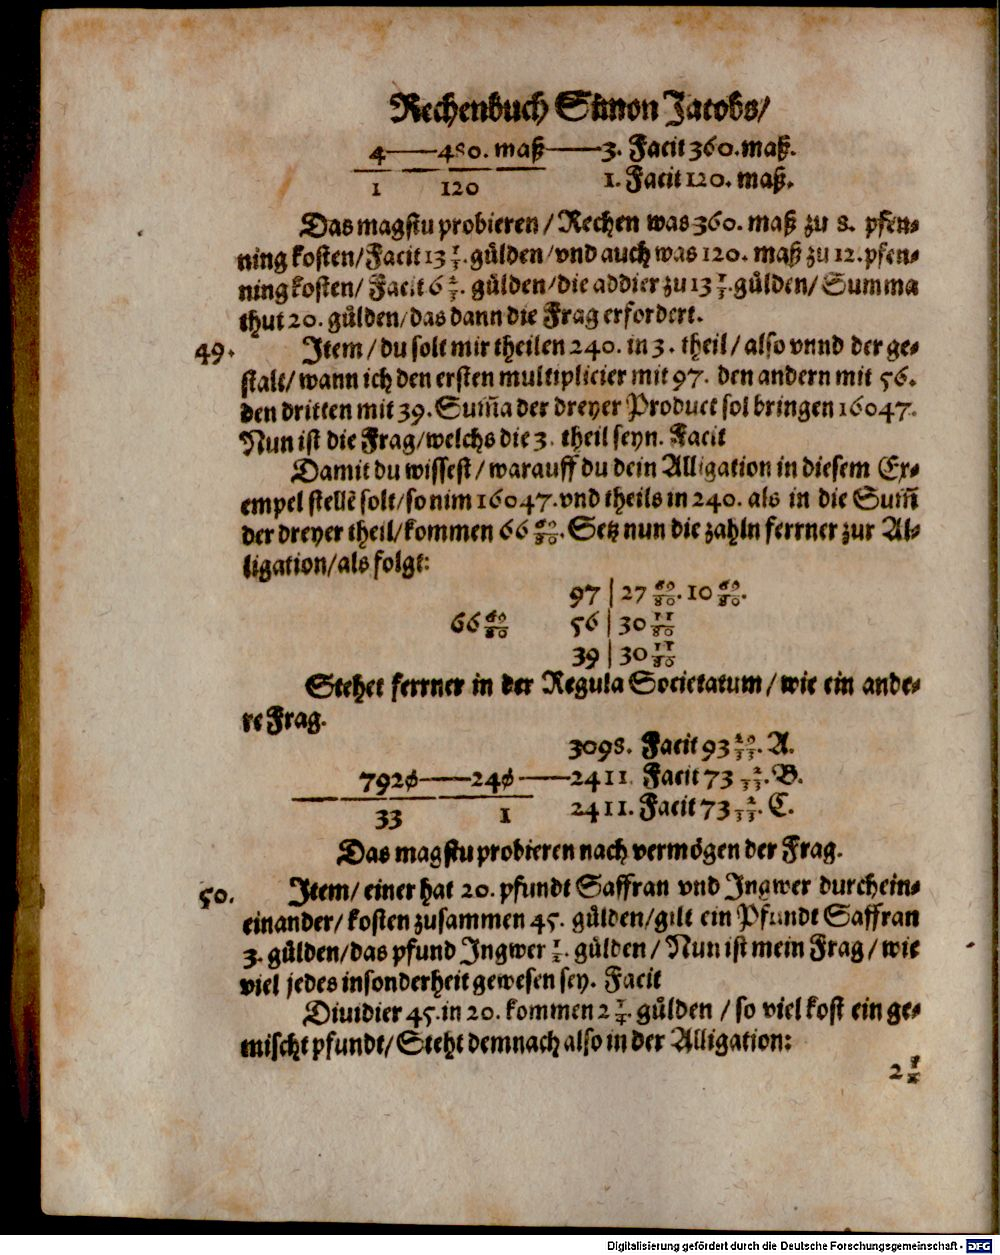 Rechenbuch Simon Jacobs/
4——480. maß——3. Facit 360. maß.
1 120 1. Facit 120. maß.
Das magstu probieren / Rechen was 360. maß zu 8. pfen-
ning kosten/ Facit 13 1/3. gülden/ vnd auch was 120. maß zu 12. pfen-
ning kosten/ Facit 6 2/3. gülden/ die addier zu 13 1/3. gülden/ Summa
thut 20. gülden/ das dann die Frag erfordert.
49. Item / du solt mir theilen 240. in 3. theil / also vnnd der ge-
stalt/ wann ich den ersten multiplicier mit 97. den andern mit 56.
den dritten mit 39. Sum̃a der dreyer Product sol bringen 16047.
Nun ist die Frag/ welchs die 3. theil seyn. Facit
Damit du wissest / warauff du dein Alligation in diesem Ex-
empel stellẽ solt/ so nim 16047. vnd theils in 240. als in die Sum̃
der dreyer theil/ kommen 66 69/80. Setz nun die zahln ferrner zur Al-
ligation/ als folgt:
97 | 27 69/80. 10 69/80.
66 69/80 56 | 30 11/80
39 | 30 11/80
Stehet ferrner in der Regula Societatum / wie ein ande-
re Frag.
3098. Facit 93 29/33. A.
7920——240——2411. Facit 73 2/33. B.
33 1 2411. Facit 73 2/33. C.
Das magstu probieren nach vermögen der Frag.
50. Item/ einer hat 20. pfundt Saffran vnd Ingwer durchein-
einander/ kosten zusammen 45. gülden/ gilt ein Pfundt Saffran
3. gülden/ das pfund Ingwer 1/2. gülden / Nun ist mein Frag / wie
viel jedes insonderheit gewesen sey. Facit
Diuidier 45. in 20. kommen 2 1/4. gülden / so viel kost ein ge-
mischt pfundt/ Steht demnach also in der Alligation:
2 1/4
Digitalisierung gefördert durch die Deutsche Forschungsgemeinschaft - DFG